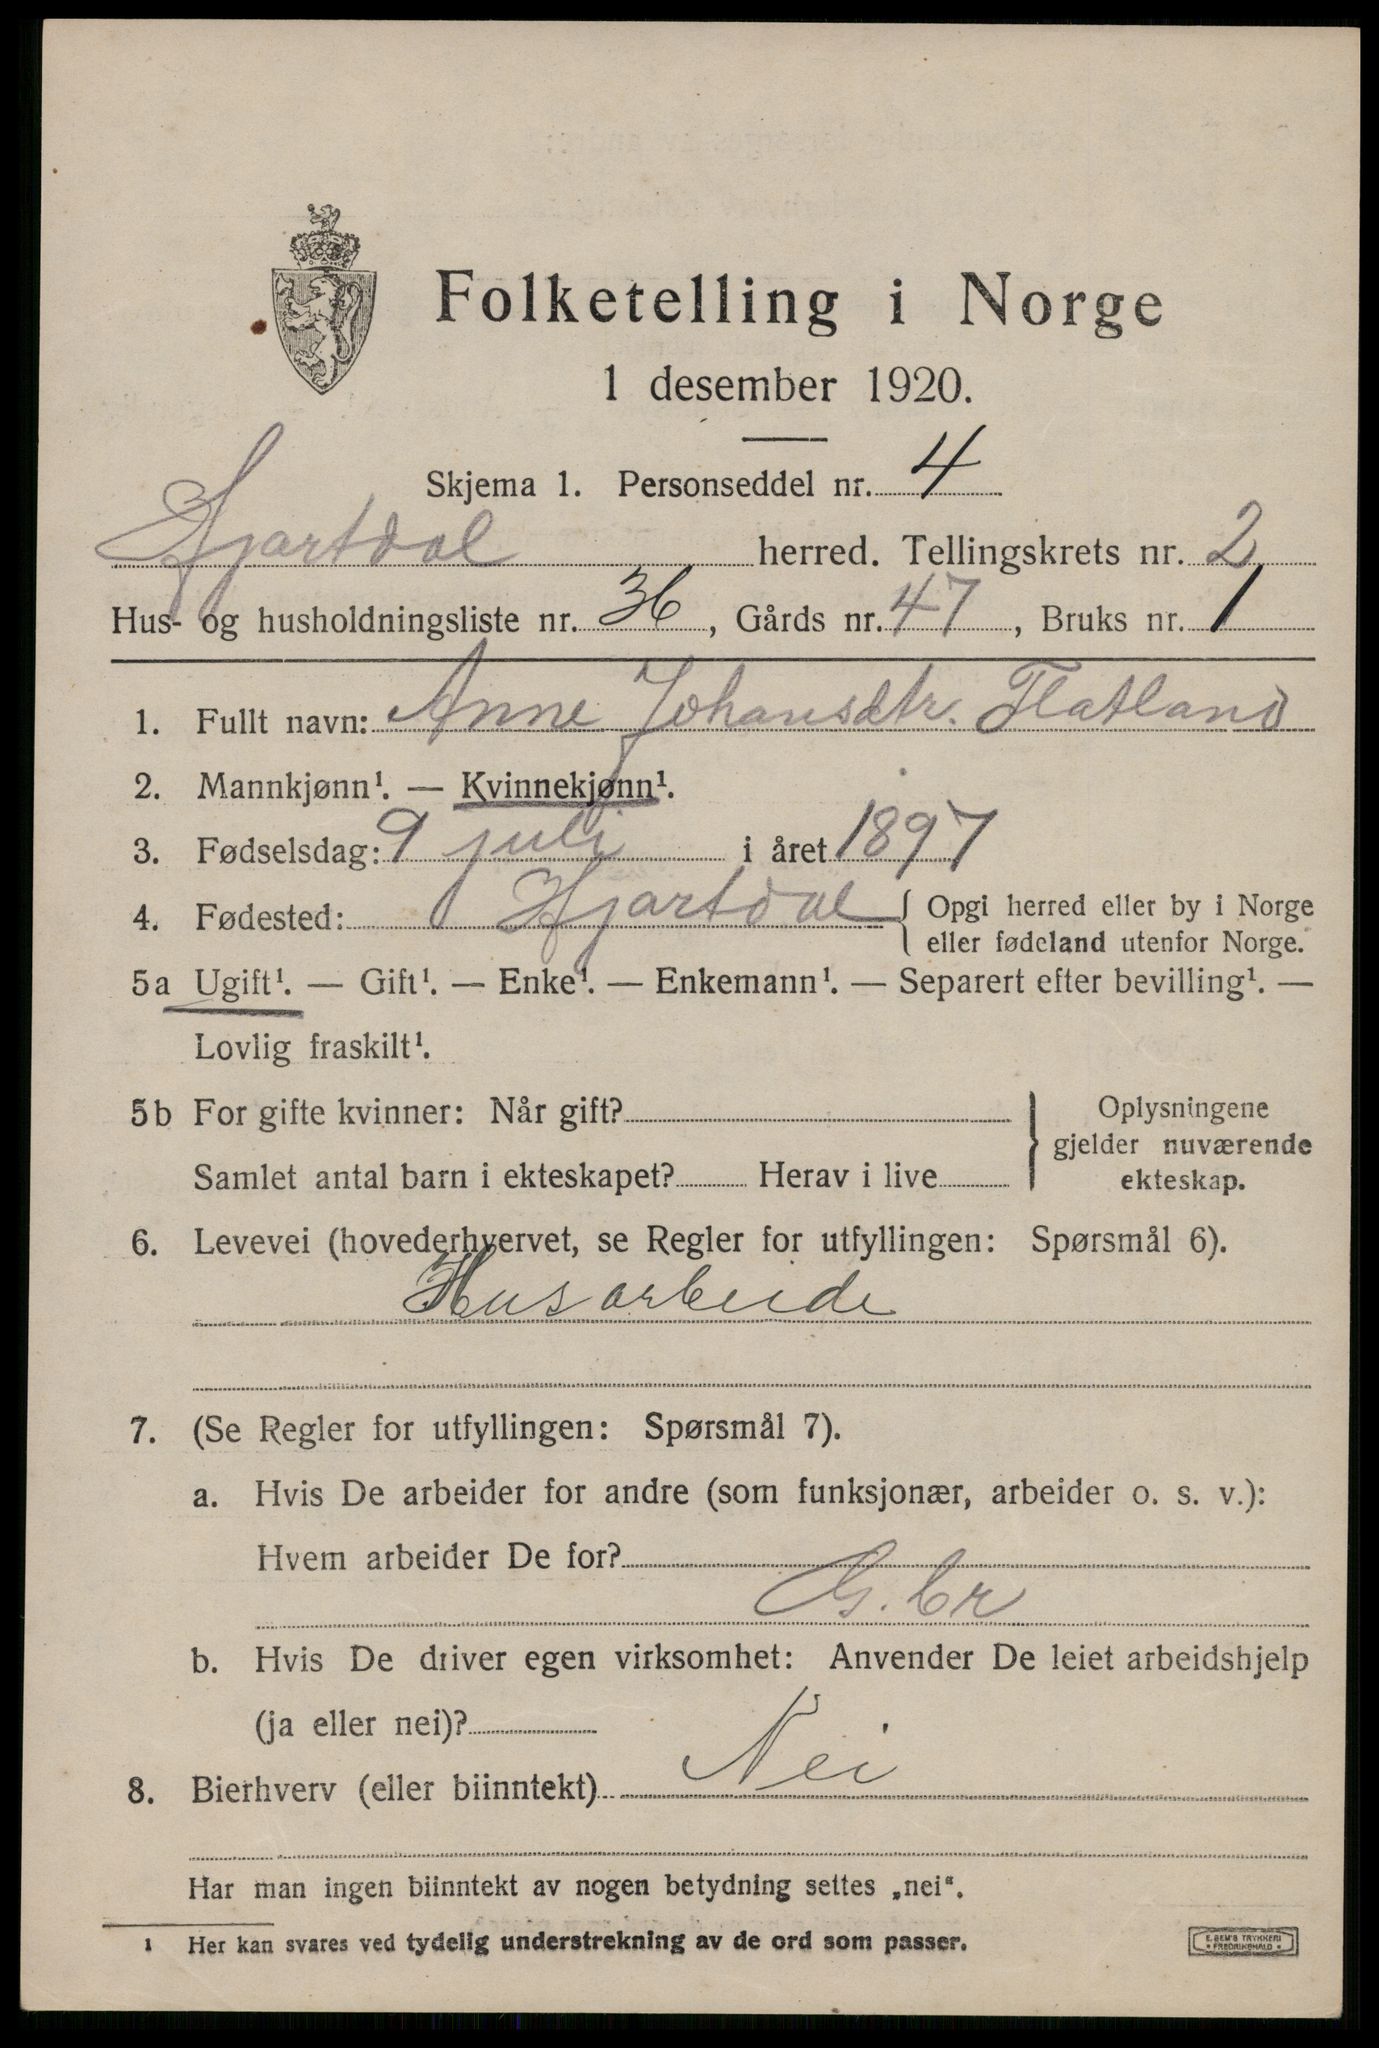 Folketelling i Norge
1 desember 1920.
Skjema 1. Personseddel nr. 4
Hjartdal herred. Tellingskrets nr. 2
Hus- og husholdningsliste nr. 36, Gårds nr. 47, Bruks nr. 1
1. Fullt navn: Anne Johansdtr. Flatland
2. Mannkjønn¹. — Kvinnekjønn¹.
3. Fødselsdag: 9 juli i året 1897
4. Fødested: Hjartdal { Opgi herred eller by i Norge
eller fødeland utenfor Norge.
5a Ugift¹. — Gift¹. — Enke¹. — Enkemann¹. — Separert efter bevilling¹. —
Lovlig fraskilt¹.
5b For gifte kvinner: Når gift?
Samlet antal barn i ekteskapet? Herav i live
} Oplysningene
gjelder nuværende
ekteskap.
6. Levevei (hovederhvervet, se Regler for utfyllingen: Spørsmål 6).
Husarbeide
7. (Se Regler for utfyllingen: Spørsmål 7).
a. Hvis De arbeider for andre (som funksjonær, arbeider o. s. v.):
Hvem arbeider De for?
G. br
b. Hvis De driver egen virksomhet: Anvender De leiet arbeidshjelp
(ja eller nei)?
8. Bierhverv (eller biinntekt) Nei
Har man ingen biinntekt av nogen betydning settes „nei“.
1 Her kan svares ved tydelig understrekning av de ord som passer.
E. SEM'S TRYKKERI
• FREDRIKSHALD •